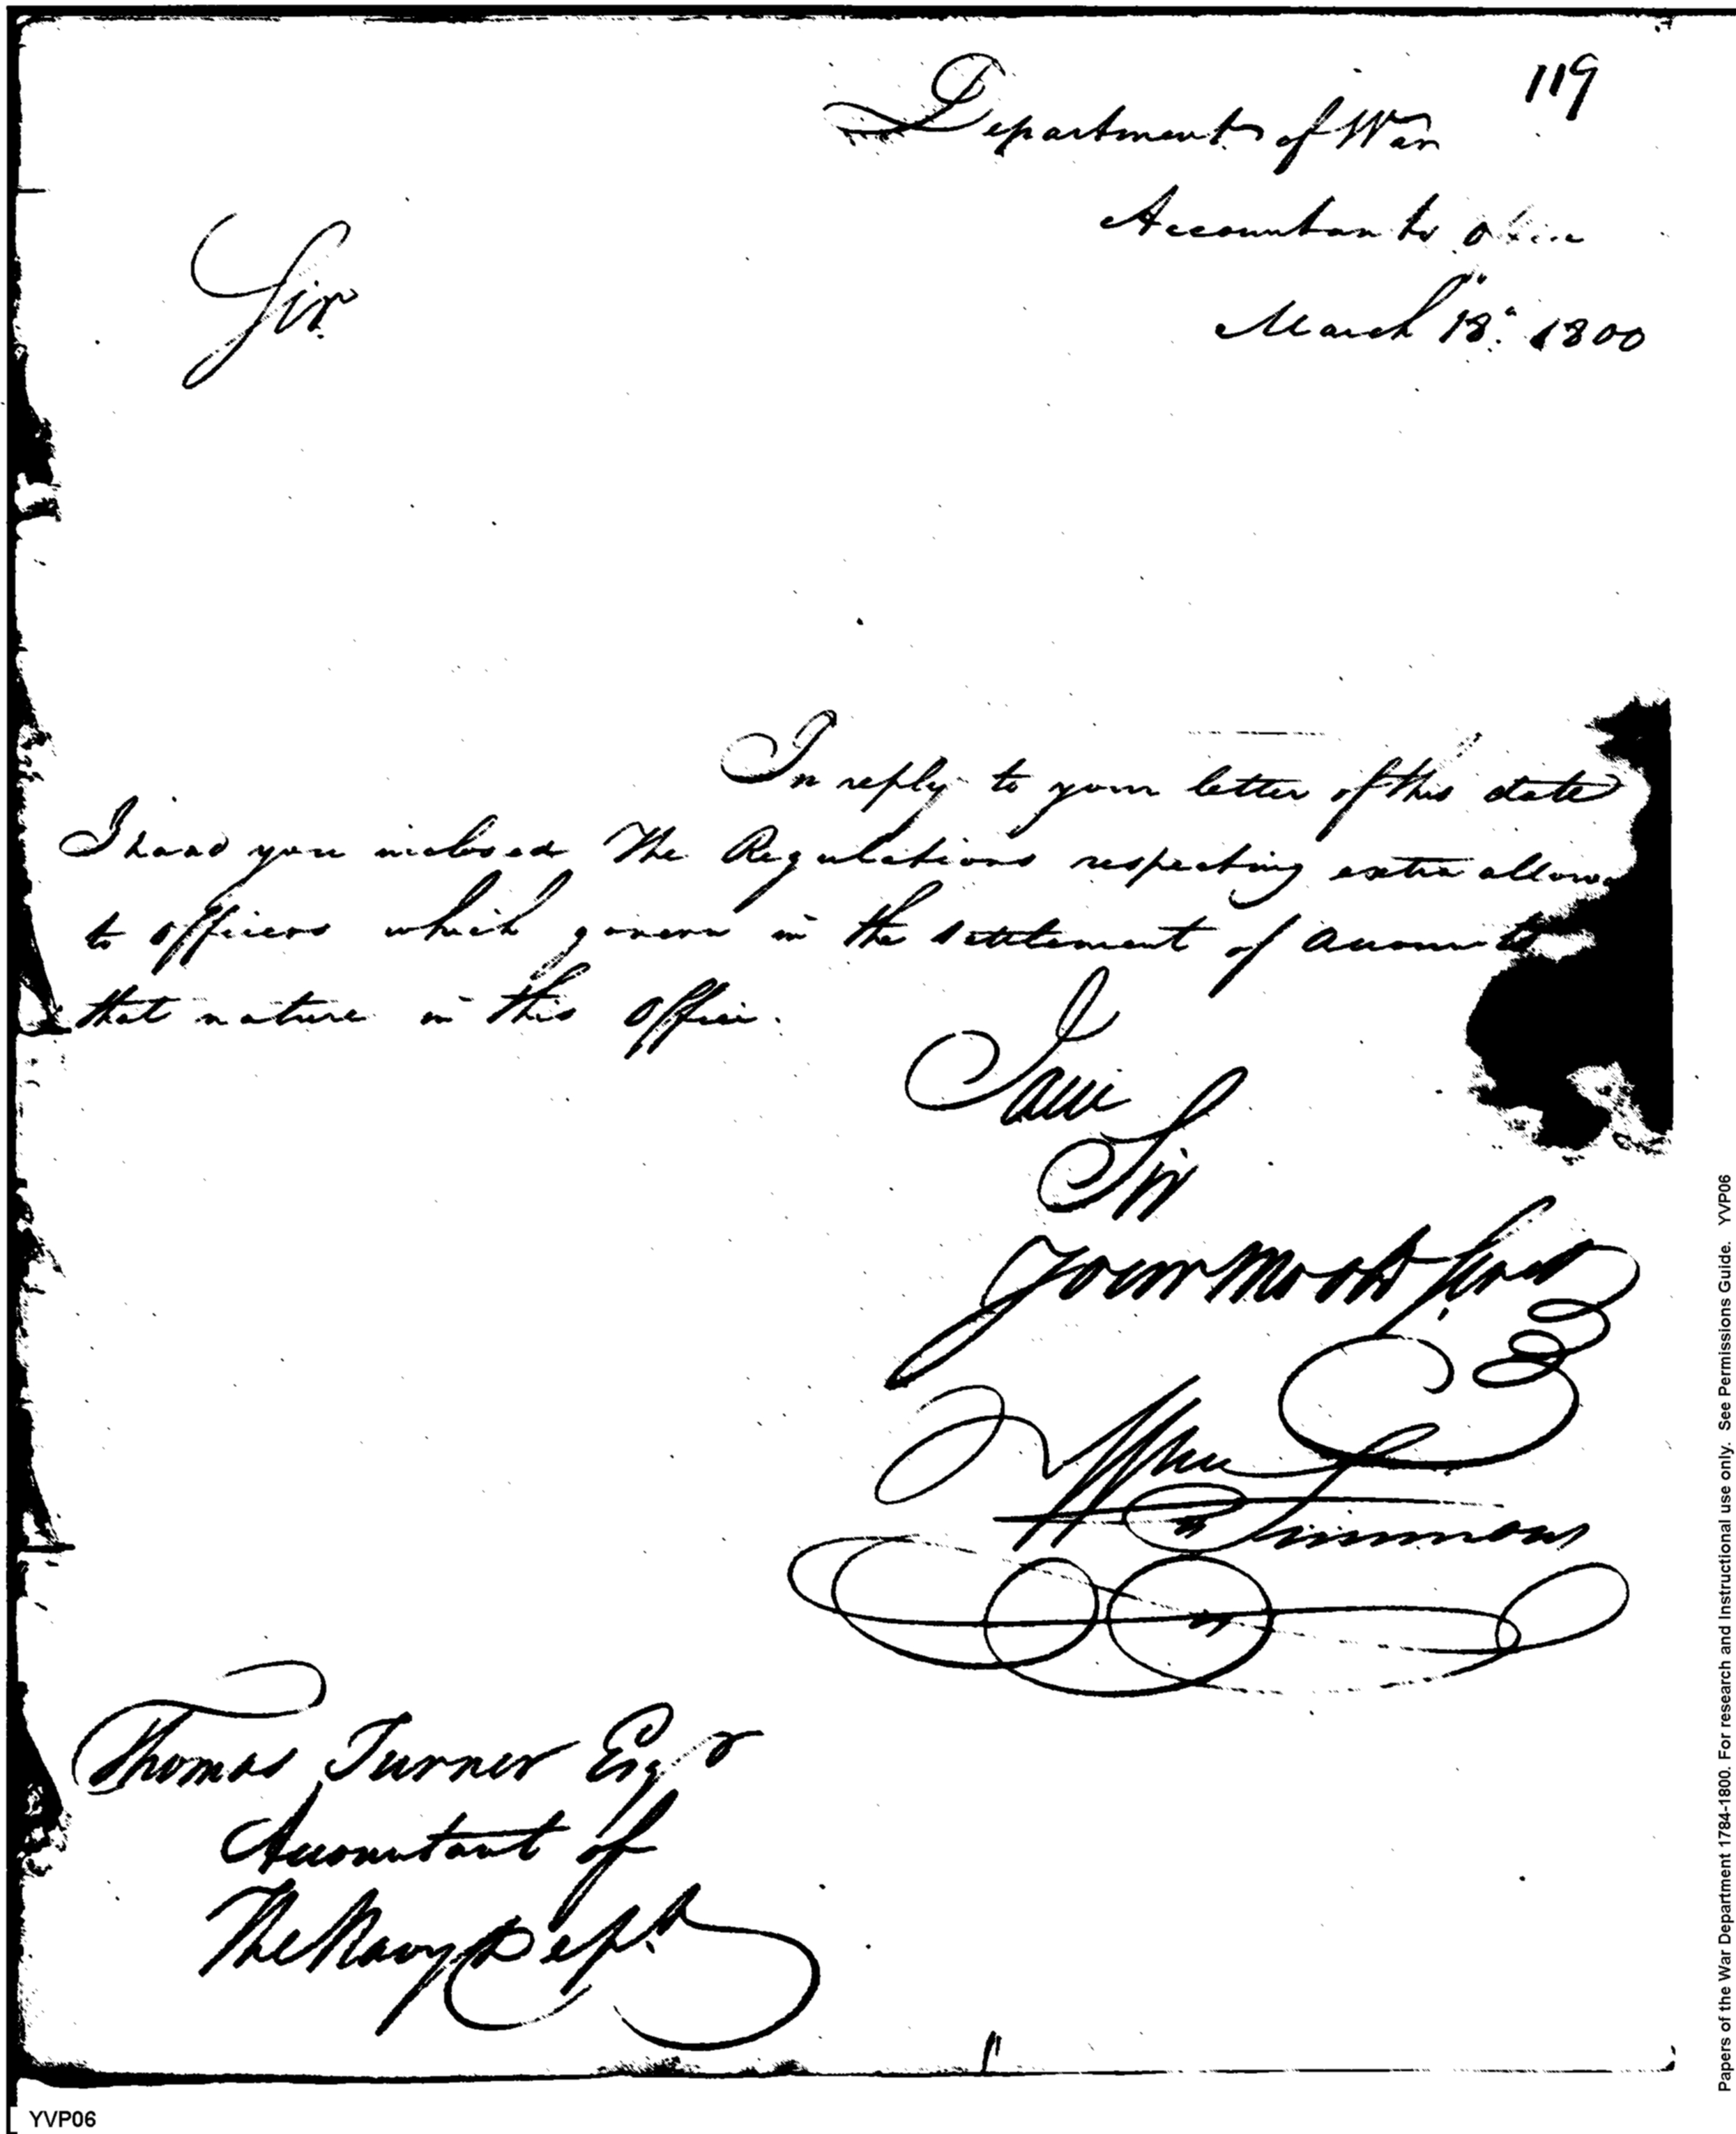 119
Department of War
Accountants Office
March 18th 1800
Sir
In reply to your letter of this date
I hand you inclosed The Regulations respecting extra allow
to officers which govern in the settlement of accounts
that nature in this office.
I am
Sir
Your Most Servt
Wm Simmons
Thomas Turner Esqr
Accountant of
The Navy Dept
YVP06
Papers of the War Department 1784-1800. For research and Instructional use only. See Permissions Guide. YVP06